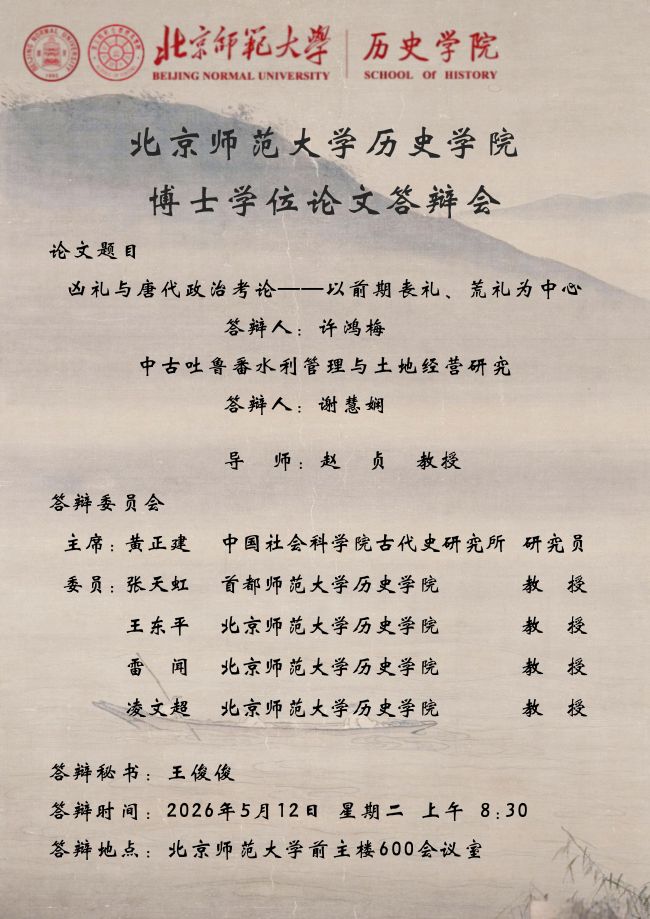 北京师范大学 历史学院
BEIJING NORMAL UNIVERSITY SCHOOL Of HISTORY
北京师范大学历史学院
博士学位论文答辩会
论文题目
凶礼与唐代政治考论——以前期丧礼、荒礼为中心
答辩人：许鸿梅
中古吐鲁番水利管理与土地经营研究
答辩人：谢慧娴
导 师：赵 贞 教授
答辩委员会
主席：黄正建 中国社会科学院古代史研究所 研究员
委员：张天虹 首都师范大学历史学院 教 授
王东平 北京师范大学历史学院 教 授
雷 闻 北京师范大学历史学院 教 授
凌文超 北京师范大学历史学院 教 授
答辩秘书：王俊俊
答辩时间：2026年5月12日 星期二 上午 8:30
答辩地点：北京师范大学前主楼600会议室